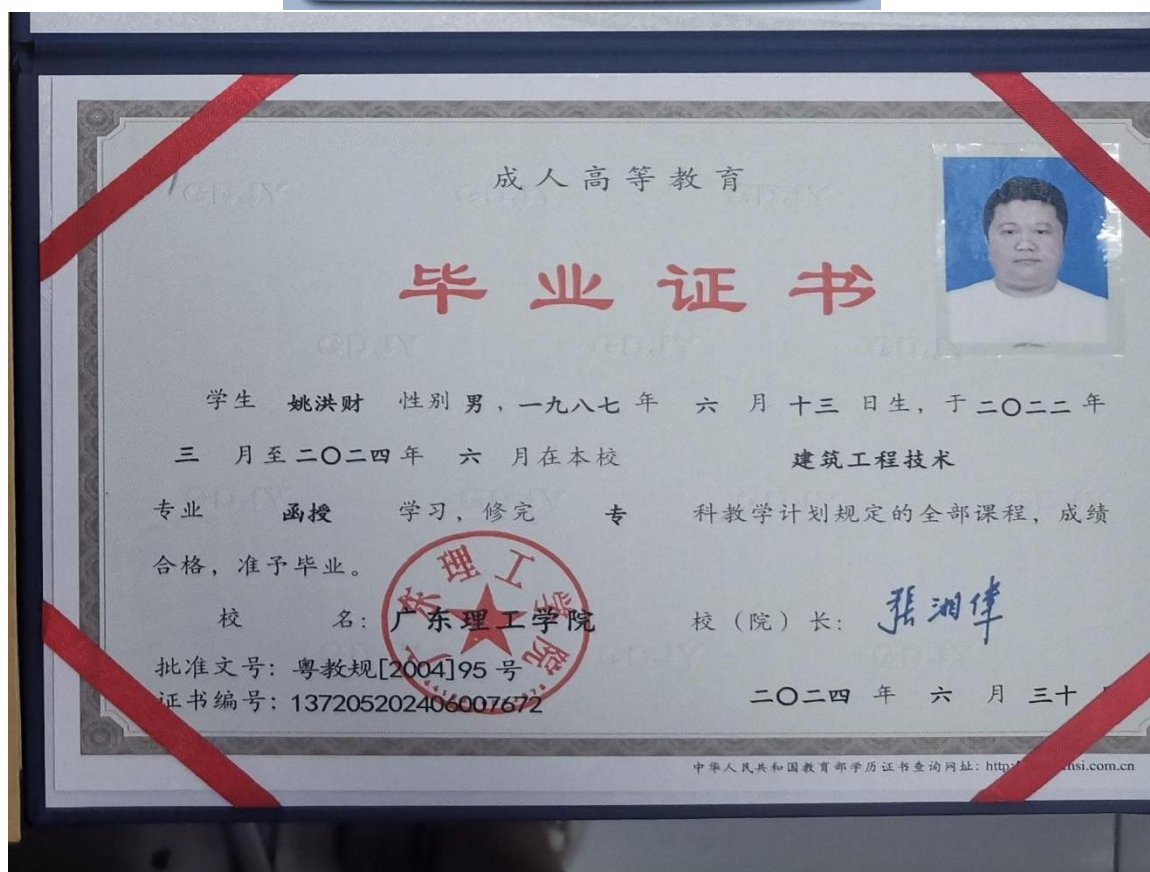 成人高等教育
毕业证书
学生 姚洪财 性别 男，一九八七 年 六 月 十三 日生，于 二〇二二 年
三 月至 二〇二四 年 六 月在本校 建筑工程技术
专业 函授 学习，修完 专 科教学计划规定的全部课程，成绩
合格，准予毕业。
校 名：广东理工学院 校（院）长：张湘伟
广东理工学院
批准文号：粤教规[2004]95 号
证书编号：137205202406007672 二〇二四 年 六 月 三十
中华人民共和国教育部学历证书查询网址：http hsi.com.cn